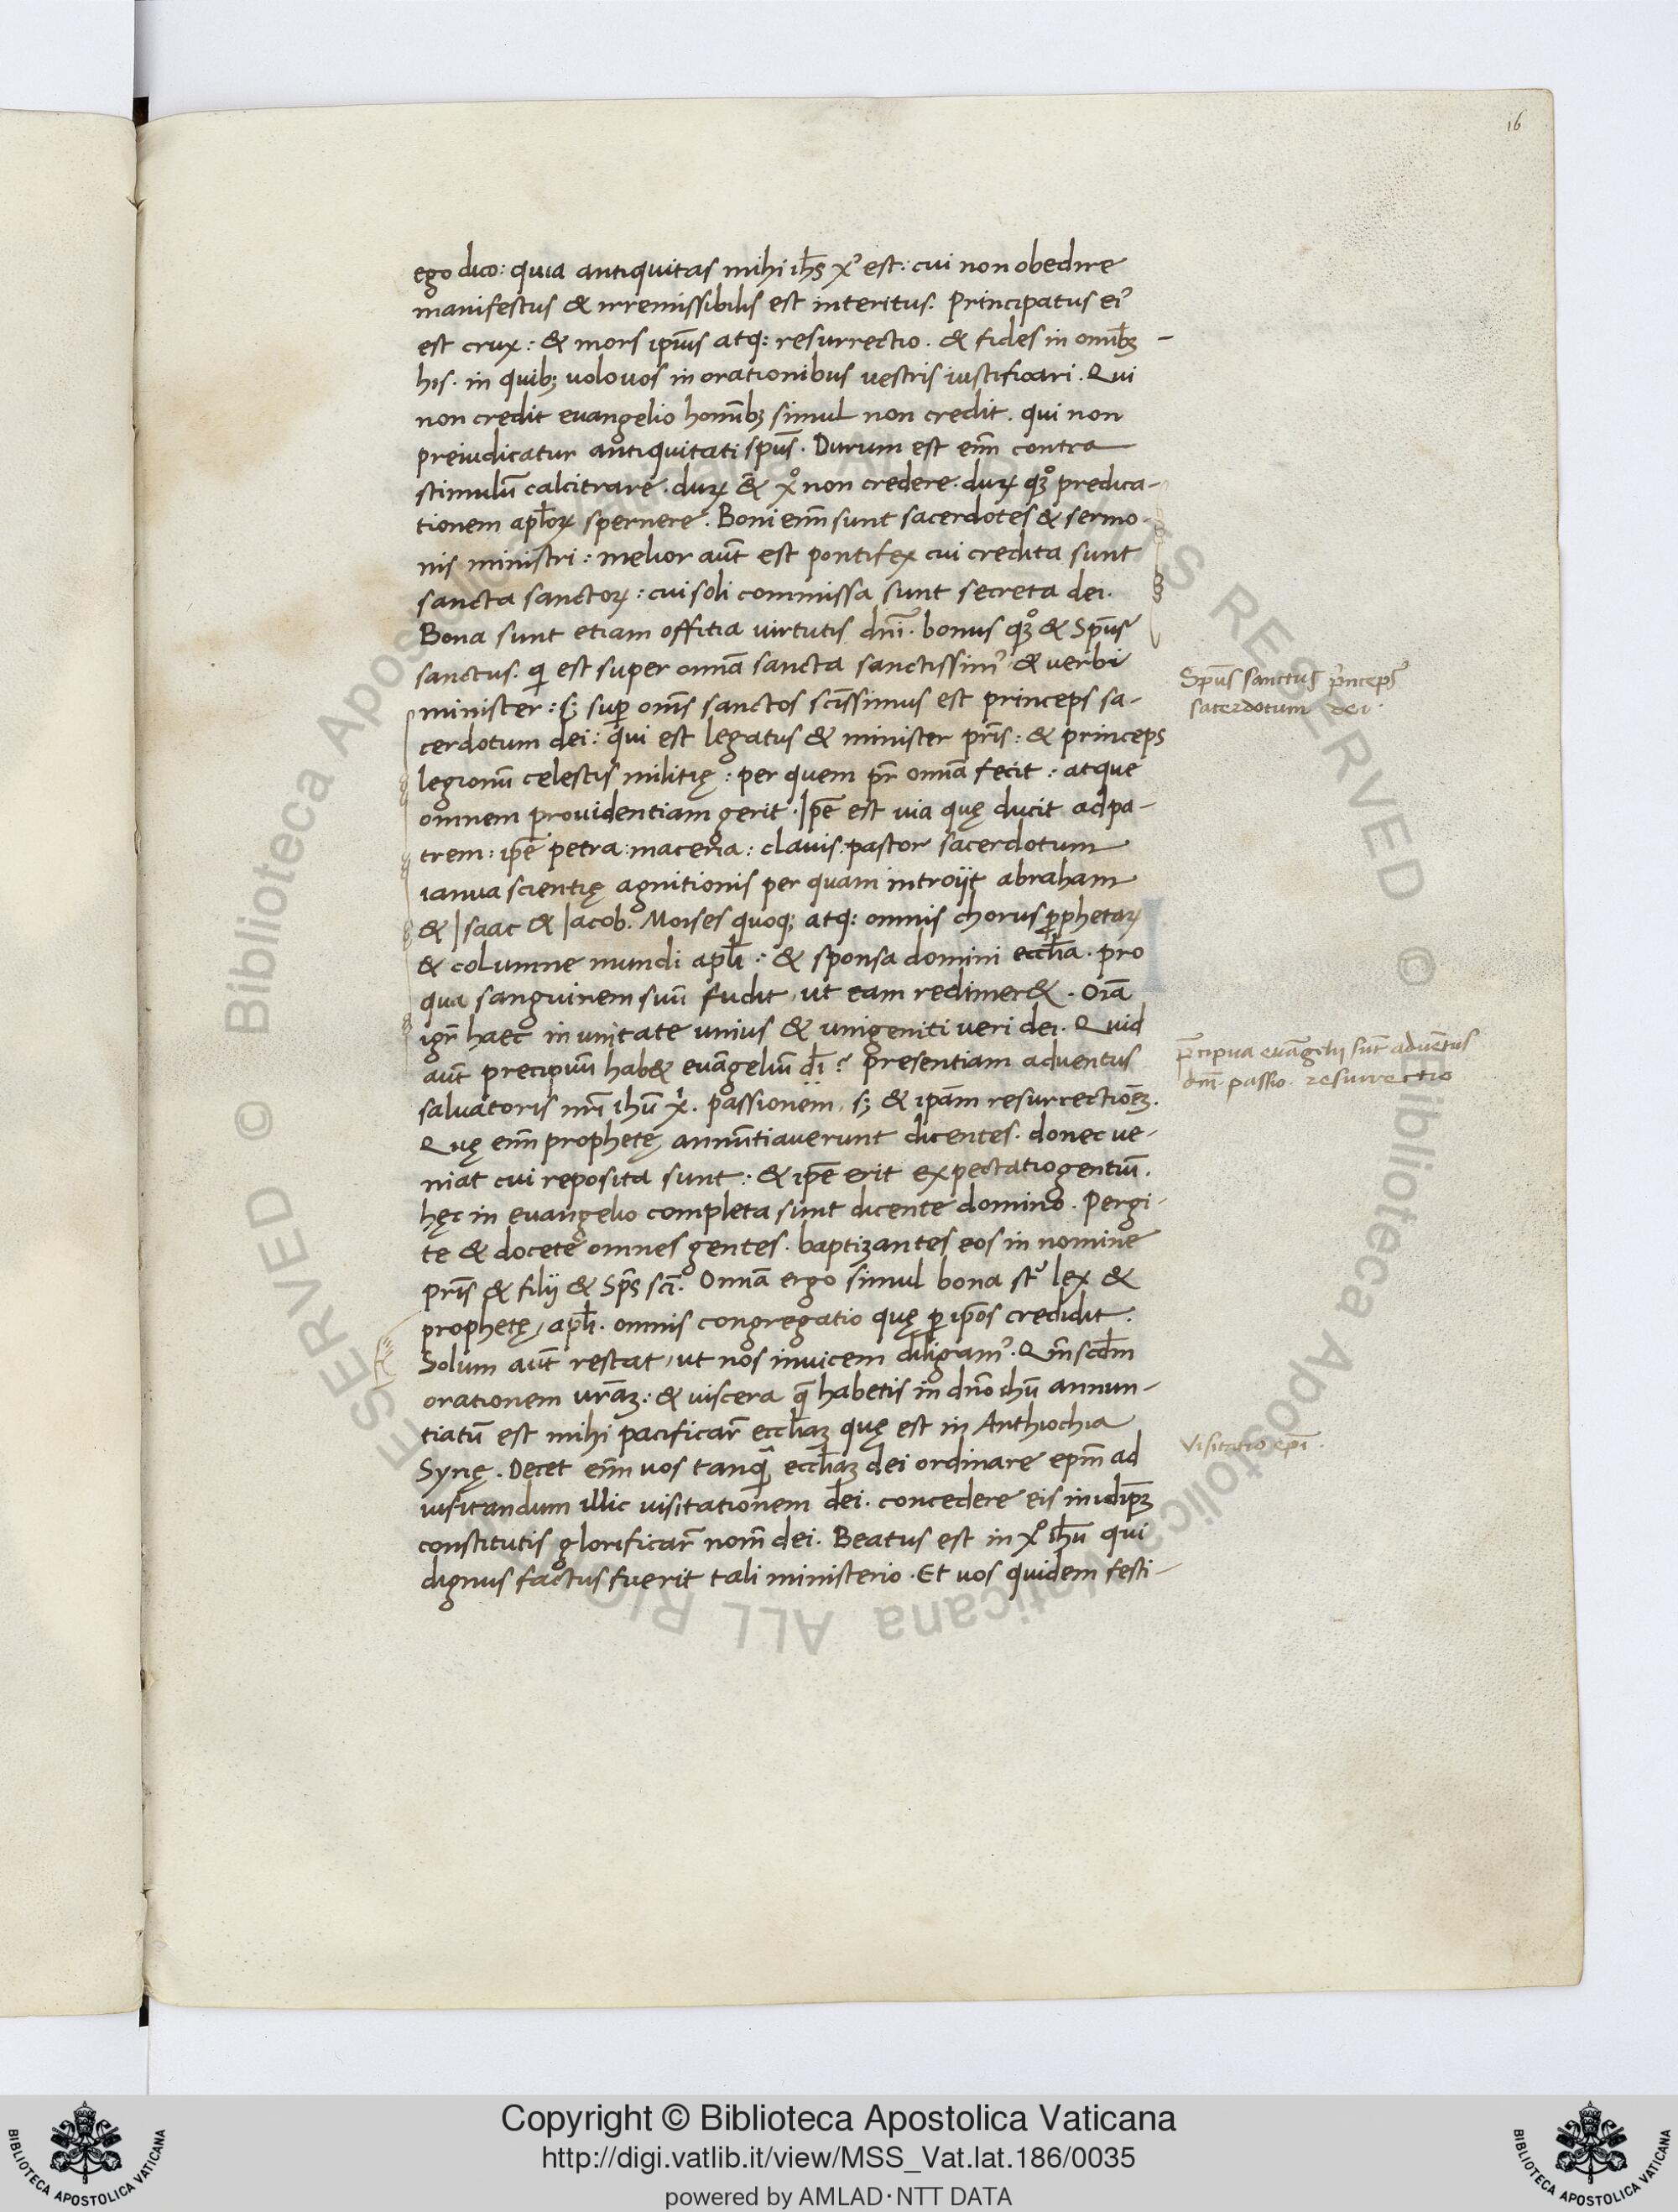 16
ego dico: quia antiquitas mihi ihs̄ xꝰ est: cui non obedire
manifestus & irremissibilis est interitus. Principatus eiꝰ
est crux: & mors ipiꝰus atq: resurrectio. & fides in omībꝫ -
his. in quibꝫ uolo uos in orationibus uestris iustificari. Qui
non credit euangelio homībꝫ simul non credit. qui non
preiudicatur antiquitati spūs. Durum est enī contra
stimulū calcitrare. duꝝ & xͦ non credere. duꝝ qͦꝫ predica-
tionem apl̄oꝝ spernere. Boni enī sunt sacerdotes & sermo-
nis ministri: melior aūt est pontifex cui credita sunt
sancta sanctoꝝ: cui soli commissa sunt secreta dei.
Bona sunt etiam offitia uirtutis dnī. bonus qͦꝫ & Spūs
sanctus. qi est super omīa sancta sanctissimꝰ & uerbi
minister: sꝫ suꝑ omēs sanctos scīssimus est princeps sa-
cerdotum dei: qui est legatus & minister prīs: & princeps
legionū celestis militię: per quem pr̄ omīa fecit: atque
omnem prouidentiam gerit. Ipē est uia quę ducit ad pa-
trem: ipē petra: maceria: clauis: pastor sacerdotum
ianua scientię agnitionis per quam introijt abraham
& Isaac & Iacob. Moises quoqꝫ atq: omnis chorus ꝓphetaꝝ
& columne mundi apl̄i: & sponsa domini eccl̄ia. pro
qua sanguinem suū fudit, ut eam redimer&. Oīa
igr̄ haec in unitate unius & unigeniti ueri dei. Quid
aūt precipuū hab& euāgeliū dī? presentiam aduentus
saluatoris nrī ihū xi. passionem, sꝫ & ipām resurrectiōeꝫ.
Quę enī prophetę annūtiauerunt dicentes. donec ue-
niat cui reposita sunt: & ipē erit expectatio gentiū.
hęc in euangelio completa sunt dicente domino. Pergi-
te & docete omnes gentes. baptizantes eos in nomine
prīs & filij & Sp̄s scī. Omīa ergo simul bona sꝉt lex &
prophetę, apl̄i. omnis congregatio quę ꝑ ipōs credidit.
Solum aūt restat, ut nos inuicem diligamꝰ. Qm̄ scd̄m
orationem urāꝫ: & uiscera q̄ habetis in dnō ihū annun-
tiatū est mihi pacificar̄ eccl̄iaꝫ quę est in Anthiochia
Syrię. Decet enī uos tanqͣ eccl̄iaꝫ dei ordinare epm̄ ad
uisitandum illic uisitationem dei. concedere eis in idip̄ꝫ
constitutis glorificar̄ nom̄ dei. Beatus est in xͦ ihū qui
dignus factus fuerit tali ministerio. Et uos quidem festi-
Spūs sanctus princeps
sacerdotum dei.
p̄cipua euāgelij sūt aduētus
dnī passio. resurrectio
Visitatio epī.
Copyright © Biblioteca Apostolica Vaticana
http://digi.vatlib.it/view/MSS_Vat.lat.186/0035
powered by AMLAD·NTT DATA
BIBLIOTECA APOSTOLICA VATICANA
BIBLIOTECA APOSTOLICA VATICANA
© Biblioteca Apostolica Vaticana ALL RIGHTS RESERVED
© Biblioteca Apostolica Vaticana ALL RIGHTS RESERVED